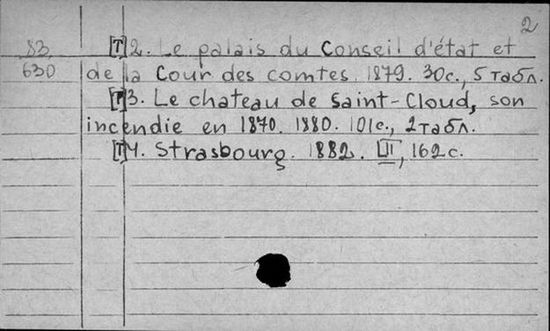 2
83 [T] 2. Le palais du Conseil d'état et
630 de la Cour des comtes. 1879. 30с., 5 табл.
[T] 3. Le chateau de Saint-Cloud, son
incendie en 1870. 1880. 101с., 2 табл.
[T] 4. Strasbourg. 1882. III, 162 с.